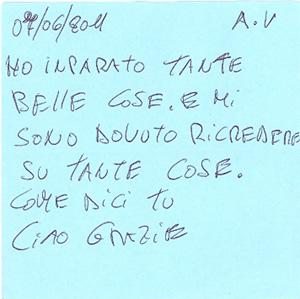 07/06/2011 A.V
HO INPARATO TANTE
BELLE COSE. E MI
SONO DOVUTO RICREDERE
SU TANTE COSE.
COME DICI TU
CIAO GRAZIE